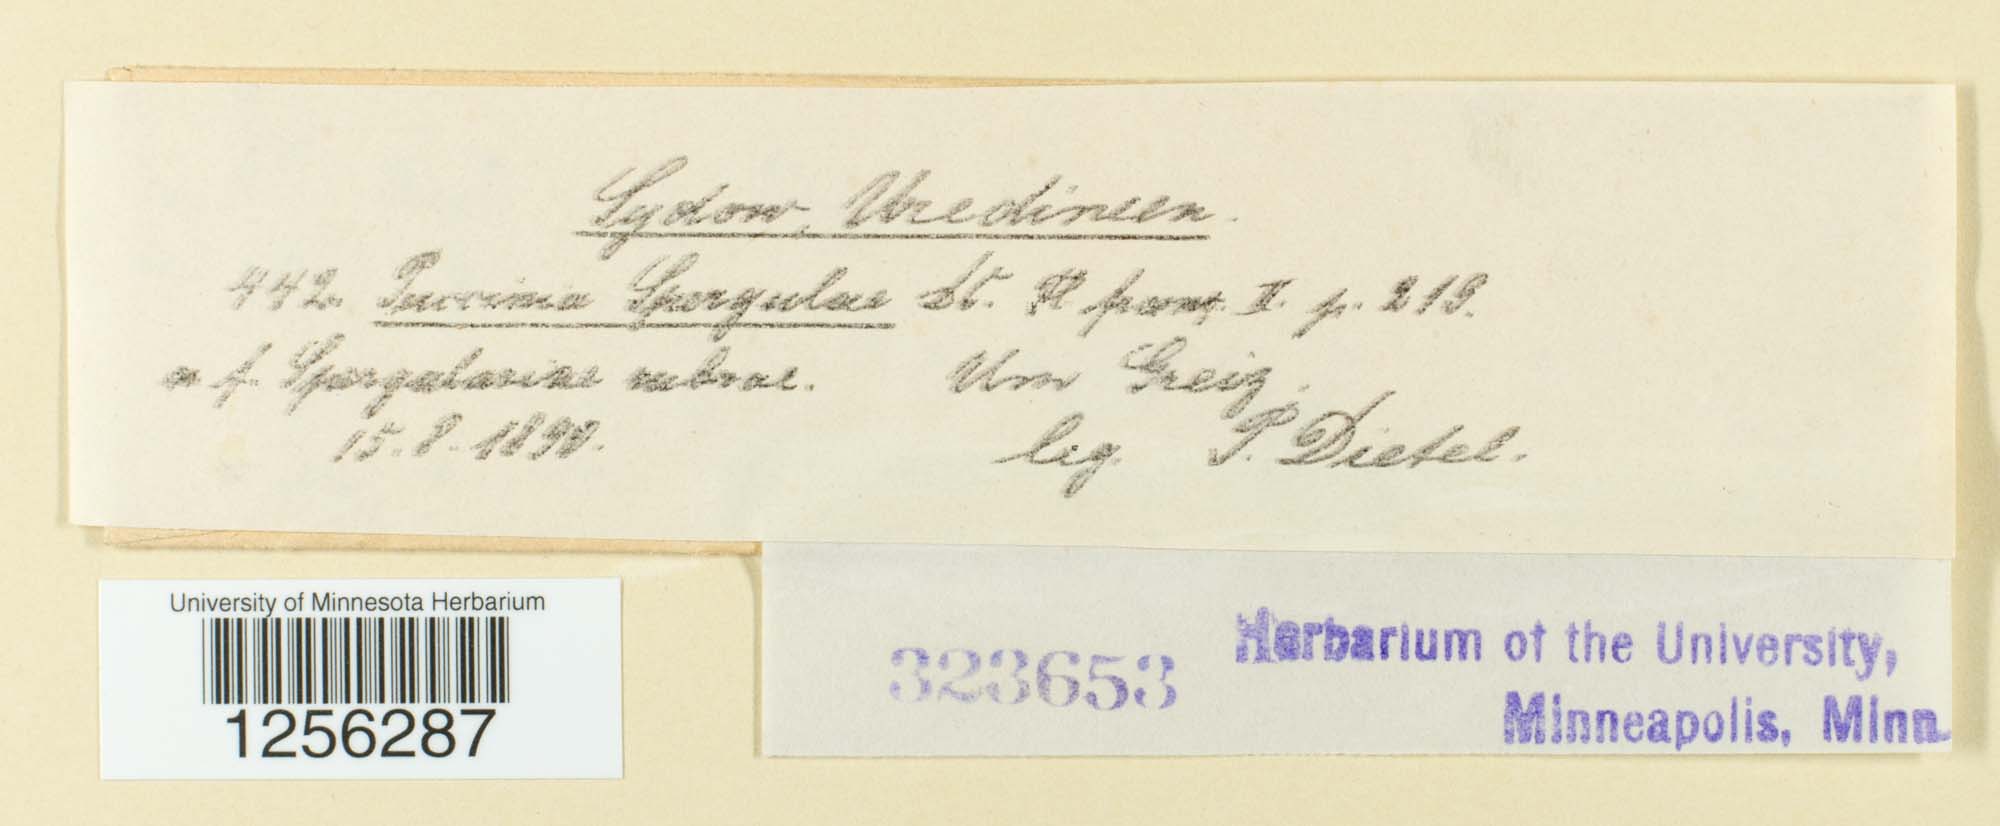 Sydow, Uredineen.
442. Puccinia Spergulae DC. Fl franç. II. p. 219.
n f. Spergulariae rubrae. Um Greiz.
15.8.1890. leg. P. Dietel.
University of Minnesota Herbarium
1256287
323653
Herbarium of the University,
Minneapolis, Minn.